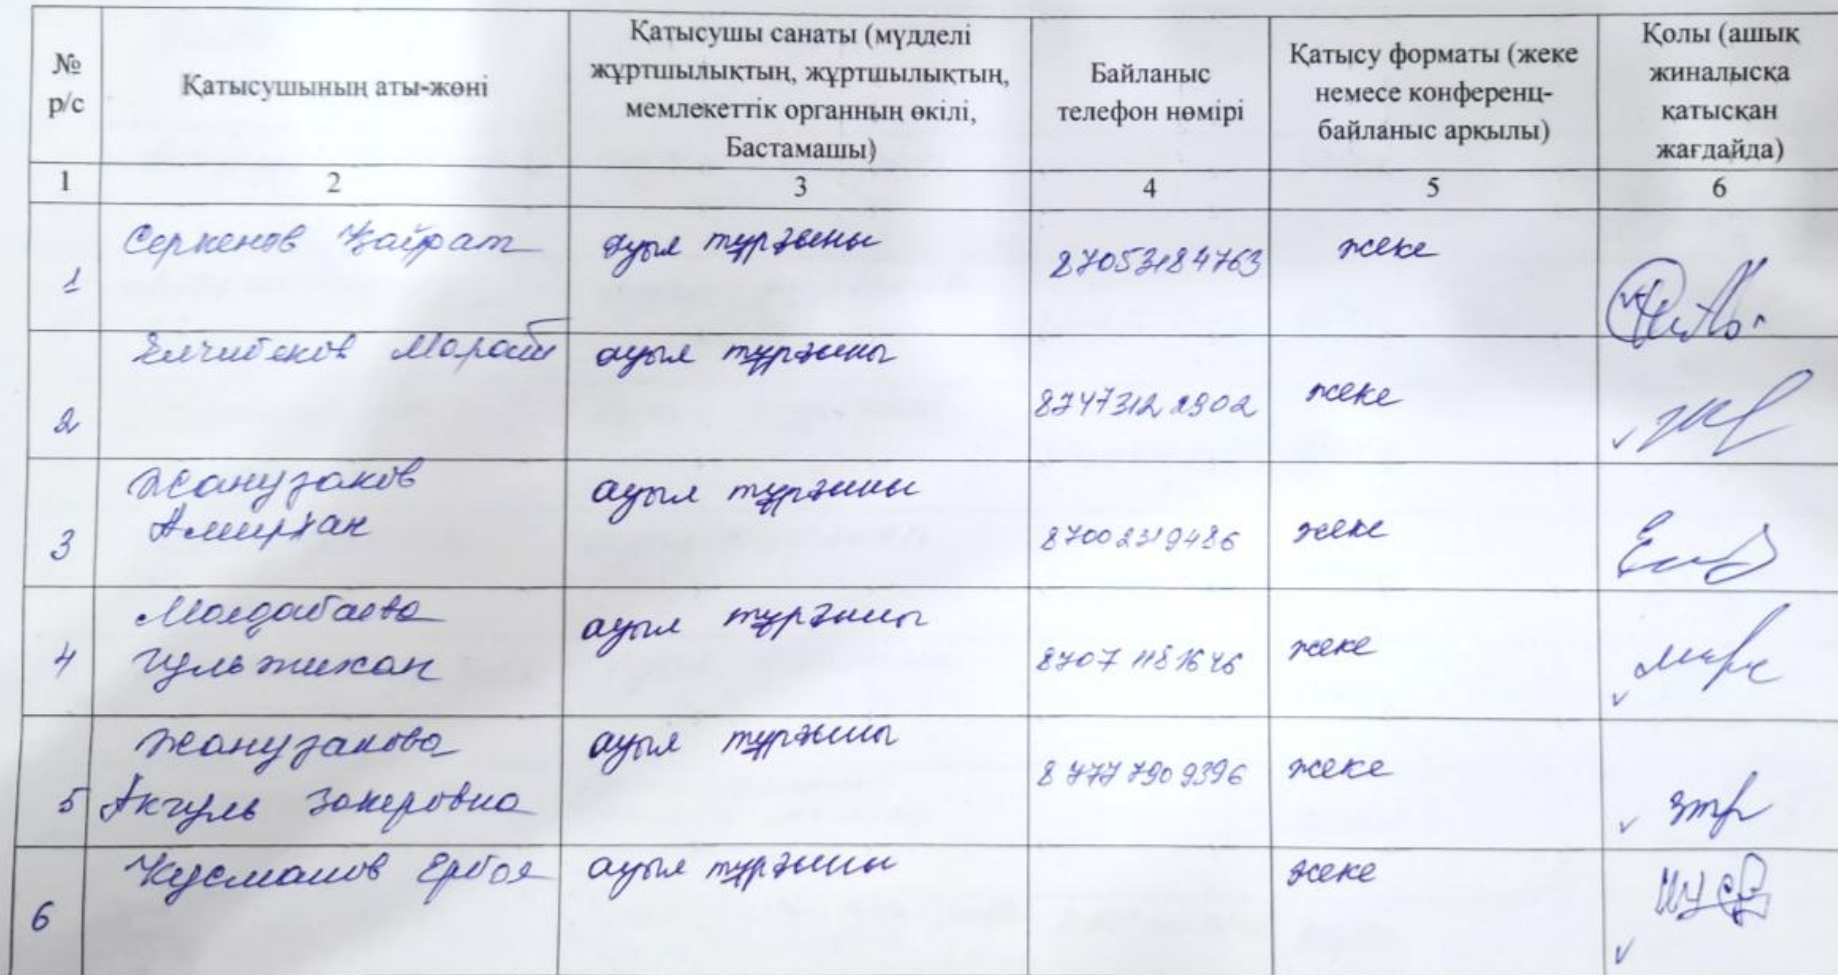 № р/с
Қатысушының аты-жөні
Қатысушы санаты (мүдделі
жұртшылықтың, жұртшылықтың,
мемлекеттік органның өкілі,
Бастамашы)
Байланыс
телефон нөмірі
Қатысу форматы (жеке
немесе конференц-
байланыс арқылы)
Қолы (ашық
жиналысқа
қатысқан
жағдайда)
1 2 3 4 5 6
1 Серкенов Қайрат ауыл тұрғыны 87053184763 жеке
2 ауыл тұрғыны 87473122902 жеке
3 Жанузаков
Амирхан ауыл тұрғыны 87002319486 жеке
4 Молдабаева
Гульжихан ауыл тұрғыны жеке
5 Жанузакова
Акгуль Закеровна ауыл тұрғыны 87777909396 жеке
6 ауыл тұрғыны жеке